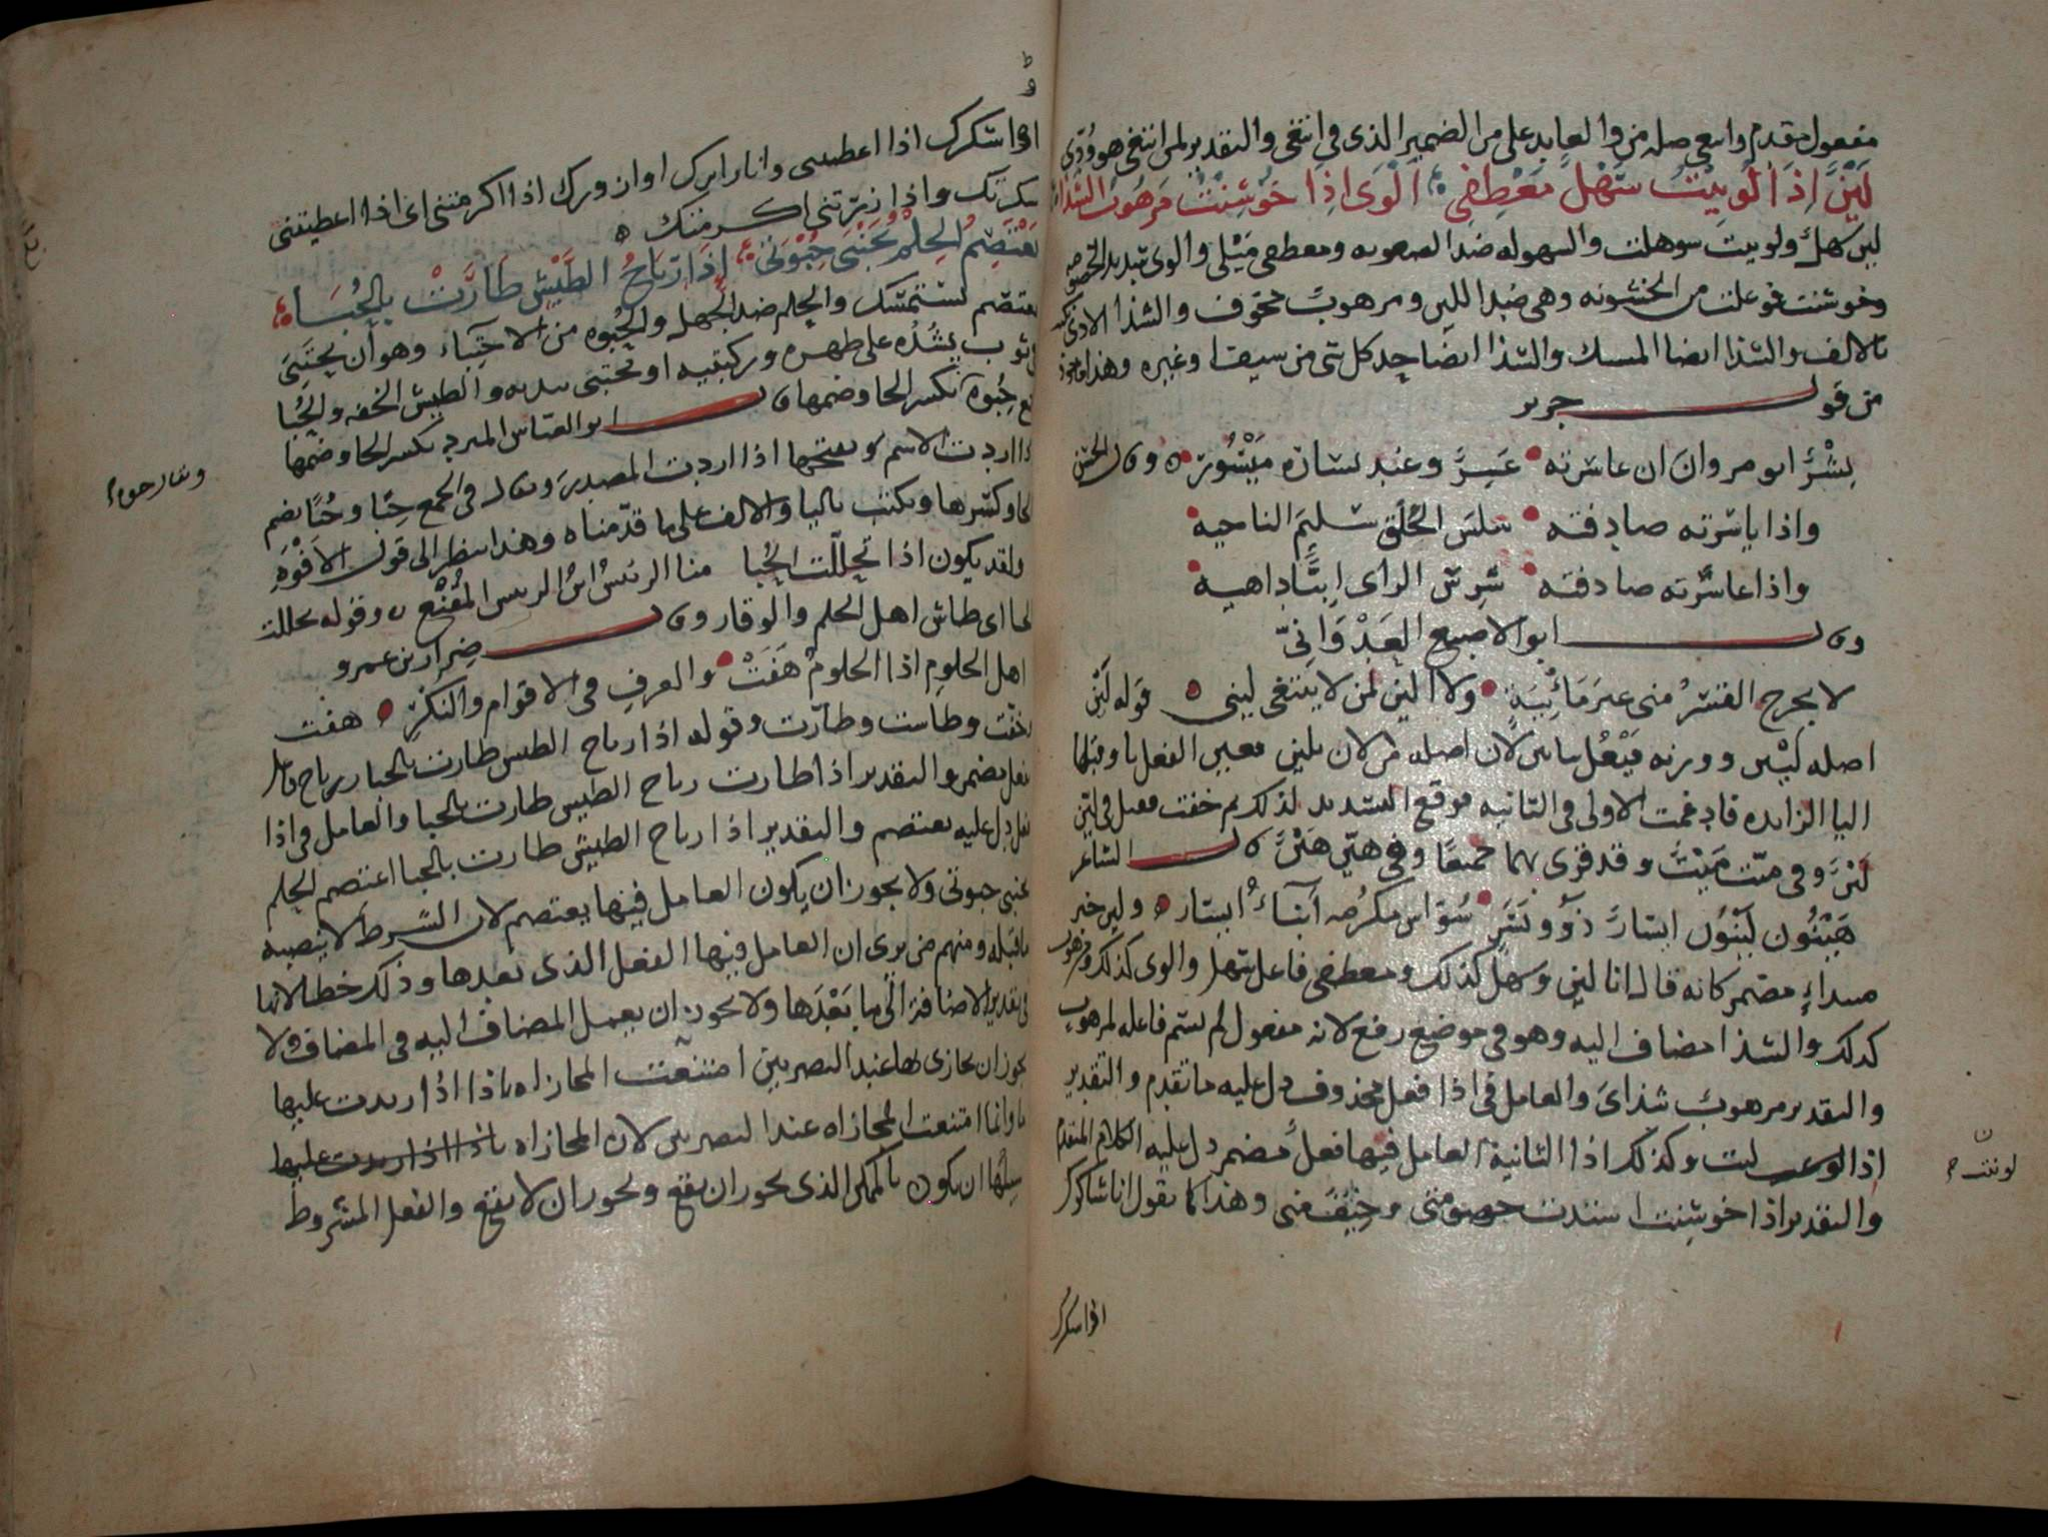 مفعول مقدم وانتغى صله من والعايد على من الضمير الذى فى انتغى والتقدير لمن انتغى هو ودى
لَيِّنٌ اِذَا لُويِنْتُ سَهْلٌ مَعْطِفِى اَلْوَى اِذَا خُوشِنْتُ مَرهُوبُ الشذا
لين سهل ولوينت سوهلت والسهوله ضد الصعوبه ومعطفى مَيْلى والوى شديد الخصومه
وخوشنت فوعلت من الخشونه وهى ضد اللين ومرهوب مخوف والشذا الاذى
بالالف والشذا ايضا المسك والشذا ايضا حد كل شى من سيف او غيره وهذا ماخوذ
من قول جرير
بِشْرٌ ابو مروان ان عاسرته عَسِرٌ وعند يساره مَيْسُور وقال
واذا ياسرته صادفته سلسَ الخُلق سليمَ الناحيه
واذا عاسرته صادفته شرِسَ الراى ابيّا داهيه
وقال ابو الاصبع العَدْوَانىّ
لا يخرج القسرُ منى غيرَ مَابِيَةٍ ولا الين لمن لا يبتغى لينى قوله لَيِّن
اصله ليين ووزنه فَيْعِل لان اصله من لان يلين فعين الفعل يا وقبلها
اليا الزايده فادغمت الاولى فى الثانيه فوقع التشديد لذلك ثم خففت فقيل فى لين
لَيْنٌ وفى ميّت مَيْتٌ وقد قرى بهما جميعًا وفى هيّن هَيْنٌ قال الشاعر
هَيْنُون لَيْنُون ايسارٌ ذوو يَسَرٍ سُوّاس مكرُمه اَبْنَاءُ ايسار ولين خبر
مبتداءٍ مضمر كانه قال انا لين وسهل كذلك ومعطفى فاعل سهل والوى كذلك ومرهوب
كذلك والشذا مضاف اليه وهو فى موضع رفع لانه مفعول لم يسم فاعله لمرهوب
والتقدير مرهوب شذاىَ والعامل فى اذا فعل محذوف دل عليه ما تقدم والتقدير
اذا لوينت لنت وكذلك اذا الثانية العامل فيها فعل مضمر دل عليه الكلام المتقدم
والتقدير اذا خوشِنت اشتدت خصومتى وخِيفَ منى وهذا كما يقول انا شاكرك
لوينت
اذا شكرك
اذا اعطيتنى وانا زايرك او ازورك اذا اكرمتنى اى اذا اعطيتنى
شكرتك واذا زرتنى اكرمتك
يَعْتَصِمُ الحِلْمُ بجَنْبَىْ حِبْوَتى اِذَا رِيَاحُ الطَّيْشِ طَارَتْ بِالحُبَا
يعتصم يستمسك والحلم ضد الجهل والحبوه من الاحتِباء وهو ان يحتَبِىَ
بثوب يشُدّه على ظهره وركبتيه او يحتبى بيديه والطيش الخفه والحُبا
جمع حِبوة بكسر الحا وضمها قال ابو العباس المبرد بكسر الحا وضمها
اذا اردت الاسم وبفتحها اذا اردت المصدر ويقال فى الجمع حِبًا وحُبًا بضم
الحا وكسرها ويكتب باليا والالف على ما قدّمناه وهذا ينظر الى قول الافْوَهِ
ولقد يكون اذا تحللت الحُبا منا الرئيسُ ابن الرئيس المُقْنَع وقوله تحللت
الحبا اى طاش اهل الحلم والوقار وقال ضِرَار بن عمرو
اهل الحلومِ اذا الحلومُ هَفَتْ والعرفِ فى الاقوام والنكر هفت
خفت وطاشت وطارت وقوله اذا رياح الطيش طارت بالحبا رياح فاعل
بفعل يضمر والتقدير اذا طارت رياح الطيش طارت بالحبا والعامل فى اذا
فعل دل عليه يعتصم والتقدير اذا رياح الطيش طارت بالحبا اعتصم الحلم
بجنبى حبوتى ولا يجوز ان يكون العامل فيها يعتصم لان الشرط لا ينصبه
ما قبله ومنهم من يرى ان العامل فيها الفعل الذى بعدها وذلك خطا لانها
فى تقدير الاضافة الى ما بَعْدَها ولا يجوز ان يعمل المضاف اليه فى المضاف ولا
يجوز ان يجازى بها عند البصريين امتنعت المجازاه باذا اذا زيدت عليها
ما وانما امتنعت المجازاه عند البصريين لان المجازاه باذا اذا زيدت عليها
سبيلُها ان يكون بالممكن الذى يجوز ان يقع ويجوز ان لا يقع والفعل المشروط
ويقال حبوه